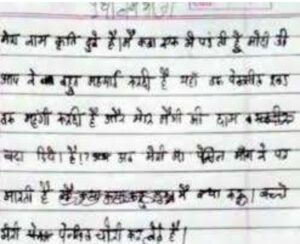 मेरा नाम कृति दुबे है। मैं कक्षा एक में पढ़ती हूँ मोदी जी
आप ने बहुत महंगाई करदी है यहाँ तक पेन्सील रबड़
तक महंगी करदी है और मेरे मैगी की दाम
बढा दिये है। अब मेरी माँ पेंसिल मांगने पर
मारती है मैं क्या करू। बच्चे
मेरी पेन्सिल चोरी कर लेते है।